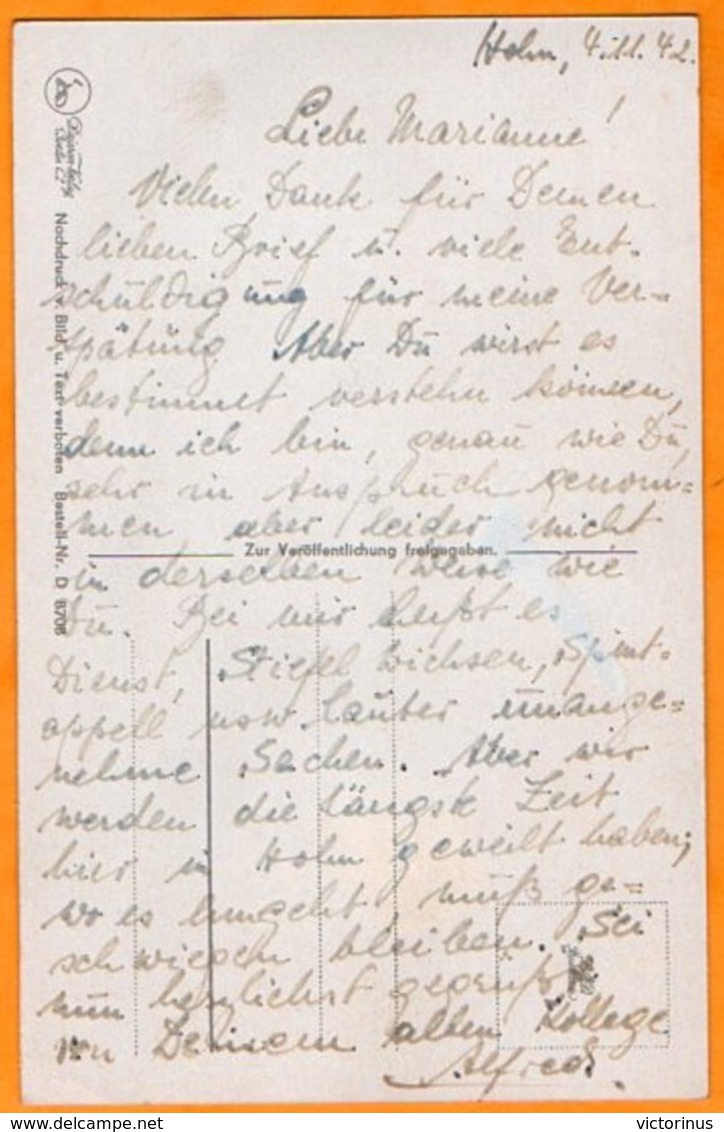 Holm, 4.11.42.
Liebe Marianne!
Vielen Dank für Deinen
lieben Brief u. viele Ent-
schuldigung für meine Ver-
spätung. Aber Du wirst es
bestimmt verstehn können,
denn ich bin, genau wie Du
sehr in Anspruch genom-
men aber leider nicht
Zur Veröffentlichung freigegeben.
in derselben Weise wie
Du. Bei mir heißt es
Dienst, Stiefel wichsen, Spint-
appell usw. lauter unange-
nehme Sachen. Aber wir
werden die längste Zeit
hier in Holm geweilt haben;
wo es hingeht, muß ge-
schwiegen bleiben. Sei
nun herzlichst gegrüßt
von Deinem alten Kollege
Alfred.
Nachdruck v. Bild u. Text verboten Bestell-Nr. D 6706
victorinus